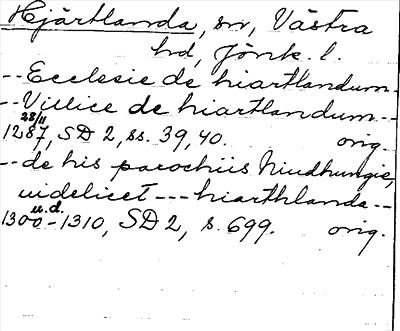 Hjärtlanda, sn, Västra
hd, Jönk. l.
-- Ecclesie de hiartlandum -
-- Villice de hiartlandum --
28/11
1287, SD 2, ss. 39, 40. orig.
-- de his parochiis Niudhungie,
uidelicet --- hiarthlanda --
u.d.
1300-1310, SD 2, s. 699. orig.